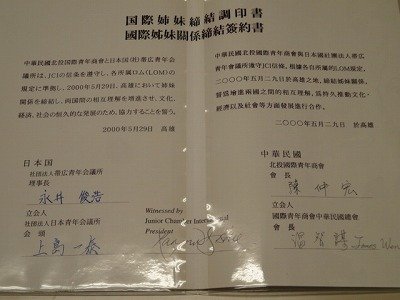 国際姉妹締結調印書
國際姉妹關係締結簽約書
中華民国北投国際青年商会と日本国(社)帯広青年会
議所は、JCIの信条を遵守し、各所属O.M(LOM)の
規定に準拠し、2000年5月29日、高雄において姉妹
関係を締結し、両国間の相互理解を増進させ、文化、
経済、社会の恒久的な発展のため、協力することを誓う。
2000年5月29日 高雄
日本国
社団法人帯広青年会議所
理事長
永井 俊浩
立会人
社団法人日本青年会議所
会頭
上島 一泰
Witnessed by
Junior Chamber International
President
中華民國北投國際青年商會與日本國社團法人帯広
青年會議所遵守JCI信條、根據各自所屬的LOM規定、
二〇〇〇年五月二九日於高雄之地、締結姉妹關係、
督盛增進兩國之間的相互理解、為持久推動文化、
經濟以及社會等方面發展進行合作。
二〇〇〇年五月二九日 於高雄
中華民國
北投國際青年商會
會長
陳仲宏
立会人
國際青年商會中華民國總會
會長
James Wen